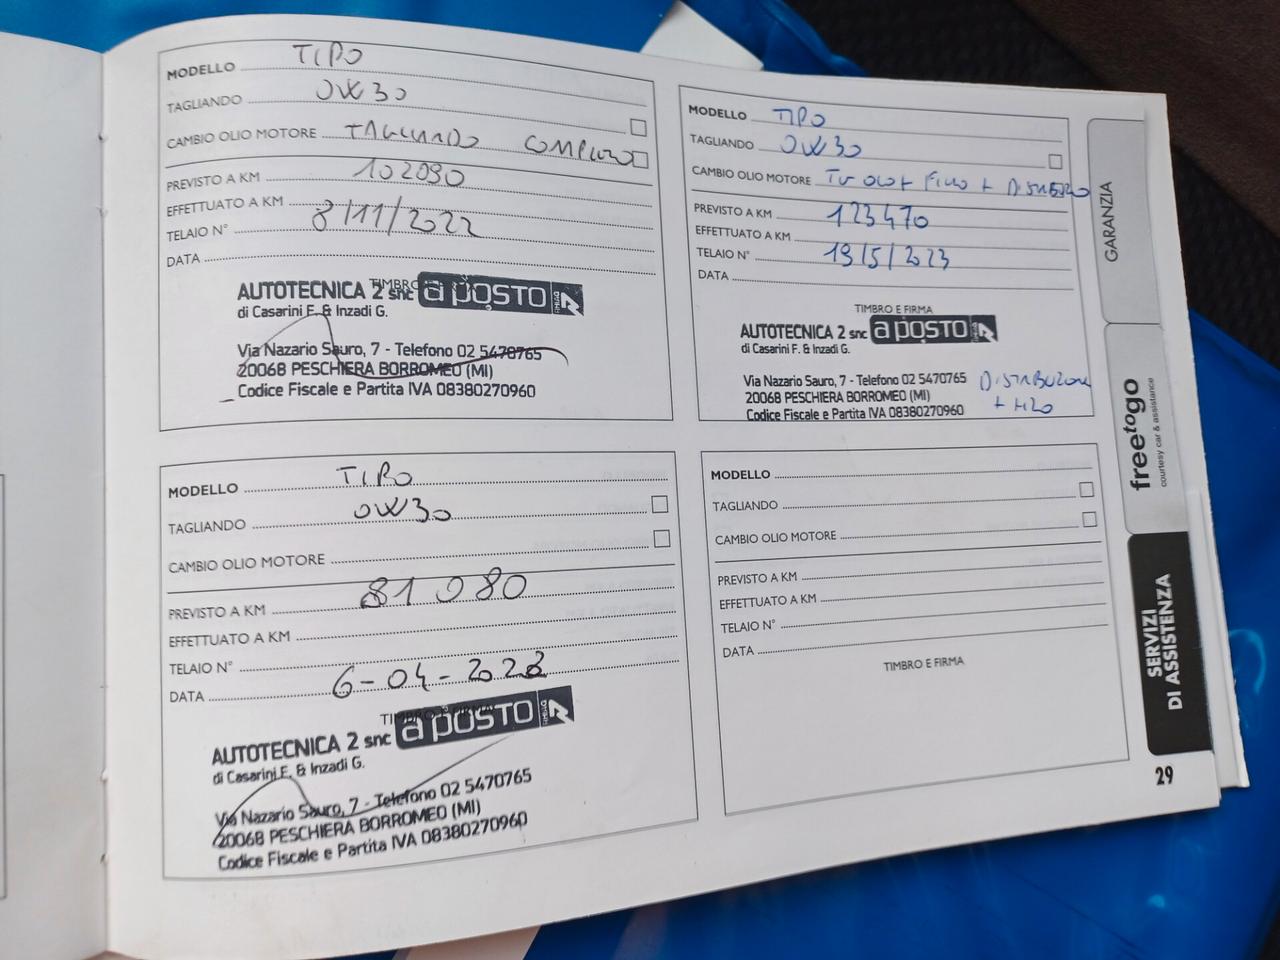 MODELLO TIPO
TAGLIANDO 0W30
CAMBIO OLIO MOTORE TAGLIANDO COMPLETO
PREVISTO A KM 102090
EFFETTUATO A KM
TELAIO N° 8/11/2022
DATA
TIMBRO E FIRMA
AUTOTECNICA 2 snc a posto
di Casarini F. & Inzadi G.
Via Nazario Sauro, 7 - Telefono 02 5470765
20068 PESCHIERA BORROMEO (MI)
Codice Fiscale e Partita IVA 08380270960
MODELLO TIPO
TAGLIANDO 0W30
CAMBIO OLIO MOTORE
PREVISTO A KM 81080
EFFETTUATO A KM
TELAIO N°
DATA 6-04-2022
TIMBRO E FIRMA
AUTOTECNICA 2 snc a posto
di Casarini F. & Inzadi G.
Via Nazario Sauro, 7 - Telefono 02 5470765
20068 PESCHIERA BORROMEO (MI)
Codice Fiscale e Partita IVA 08380270960
MODELLO TIPO
TAGLIANDO 0W30
CAMBIO OLIO MOTORE + +
PREVISTO A KM 123470
EFFETTUATO A KM
TELAIO N° 19/5/2023
DATA
TIMBRO E FIRMA
AUTOTECNICA 2 snc a posto
di Casarini F. & Inzadi G.
Via Nazario Sauro, 7 - Telefono 02 5470765
20068 PESCHIERA BORROMEO (MI)
Codice Fiscale e Partita IVA 08380270960
DISTRIBUZIONE
+ H2O
MODELLO
TAGLIANDO
CAMBIO OLIO MOTORE
PREVISTO A KM
EFFETTUATO A KM
TELAIO N°
DATA
TIMBRO E FIRMA
GARANZIA
freetogo
courtesy car & assistance
SERVIZI
DI ASSISTENZA
29